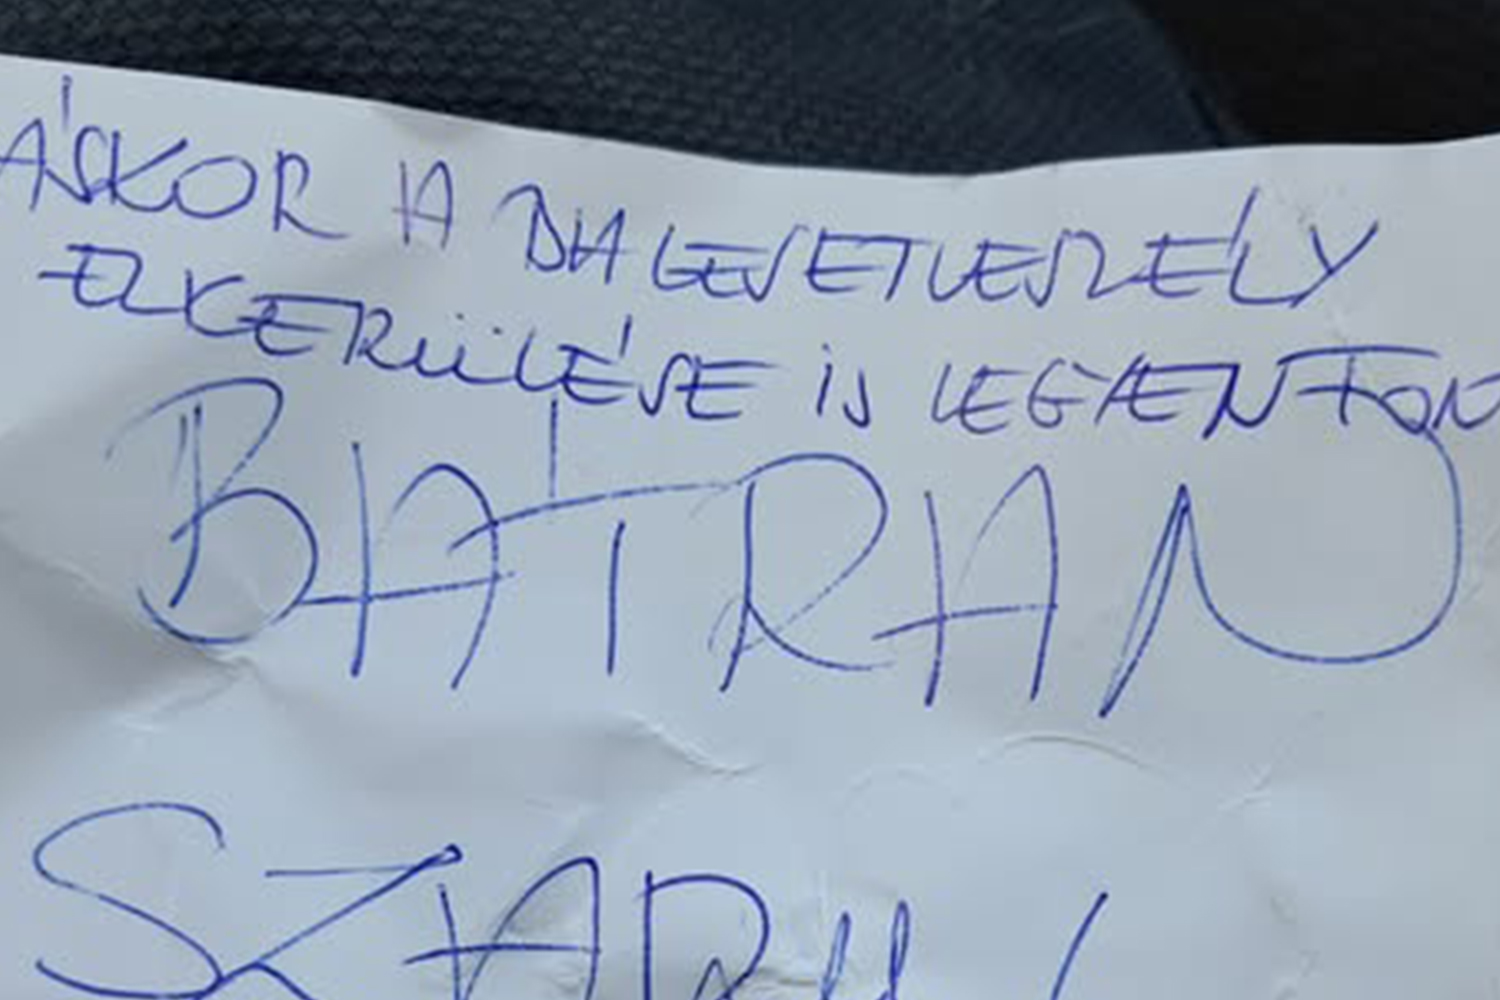 ÁSKOR A BALESETVESZÉLY
ELKERÜLÉSE IS LEGYEN FON
BÁTRAN